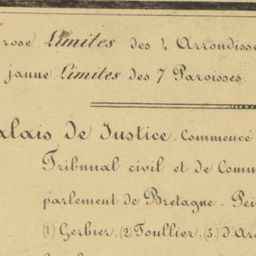 rose Limites des 4 Arrondisse
jaune Limites des 7 Paroisses.
alais De Justice. Commencé
Tribunal civil et de Com
parlement de Bretagne - Pei
(1) Gerbier, (2) Toullier, (3) d'Ar